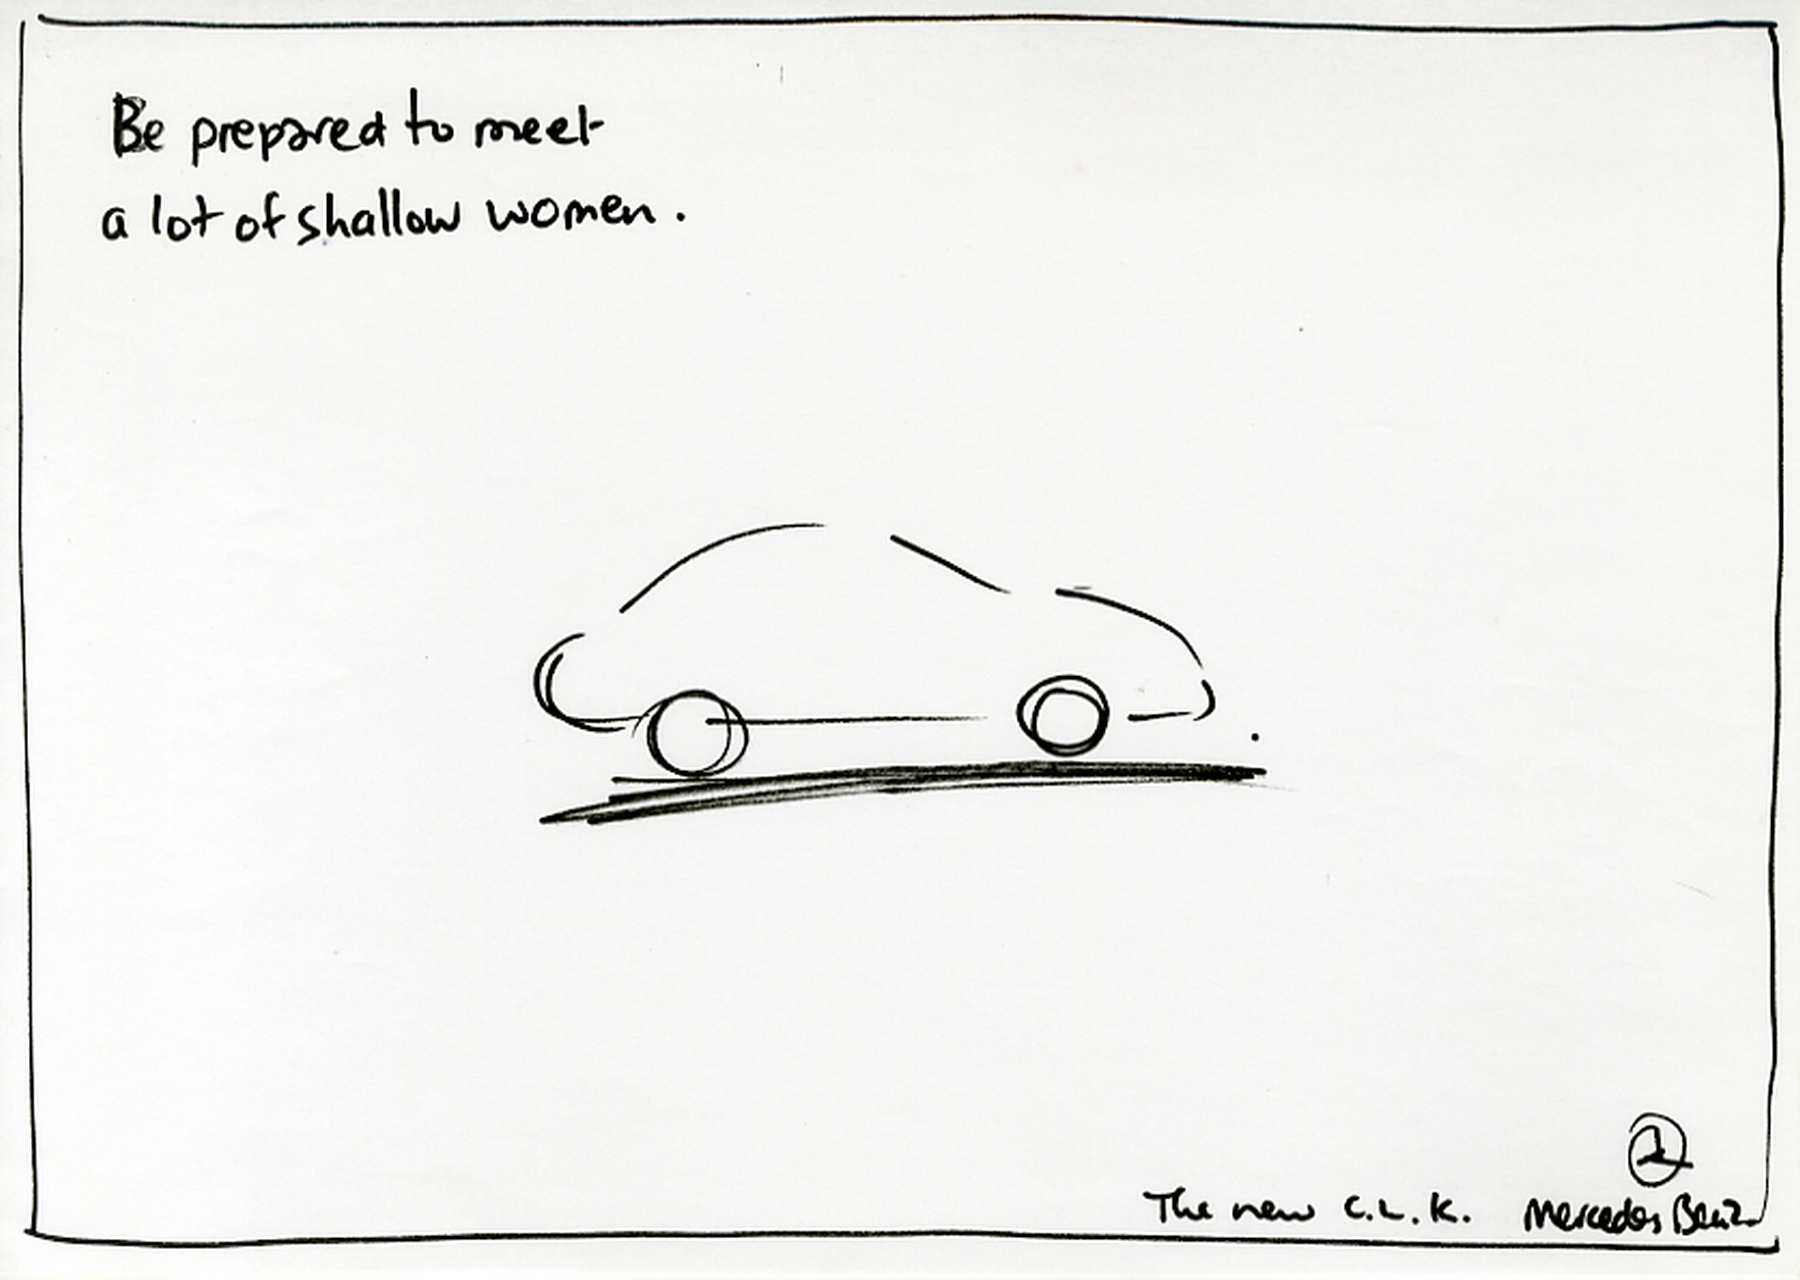 Be prepared to meet
a lot of shallow women.
The new C.L.K. Mercedes Benz